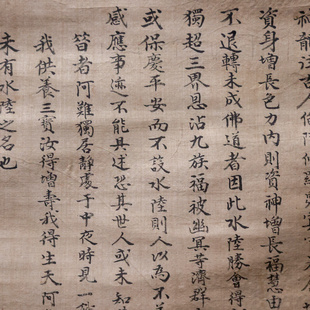 資身增長色力內則資神增長福慧由
不退轉未成佛道者因此水陸勝會得
獨超三界恩沾九族福被幽冥普濟群
或保慶平安而不設水陸則人以為不
感應事迹不能具述恐其世人或未知
昔者阿難獨居靜處于中夜時見一
我供養三寶汝得增壽我得生天阿
未有水陸之名也